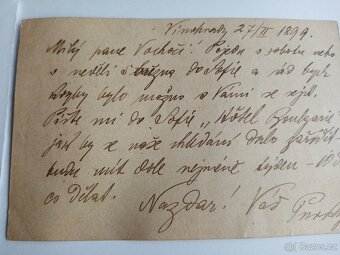 Vinohrady 27/II 1899.
Milý pane Vochoči! Pojedu v sobotu nebo
v neděli 5 března do Sofie a rád bych
kdyby bylo možno s Vámi se sejít.
Pište mi do Sofie „Hôtel Bulgarie
jak by se naše shledání dalo zařídit
budu mít dole nejméně týden
co dělat.
Nazdar! Váš